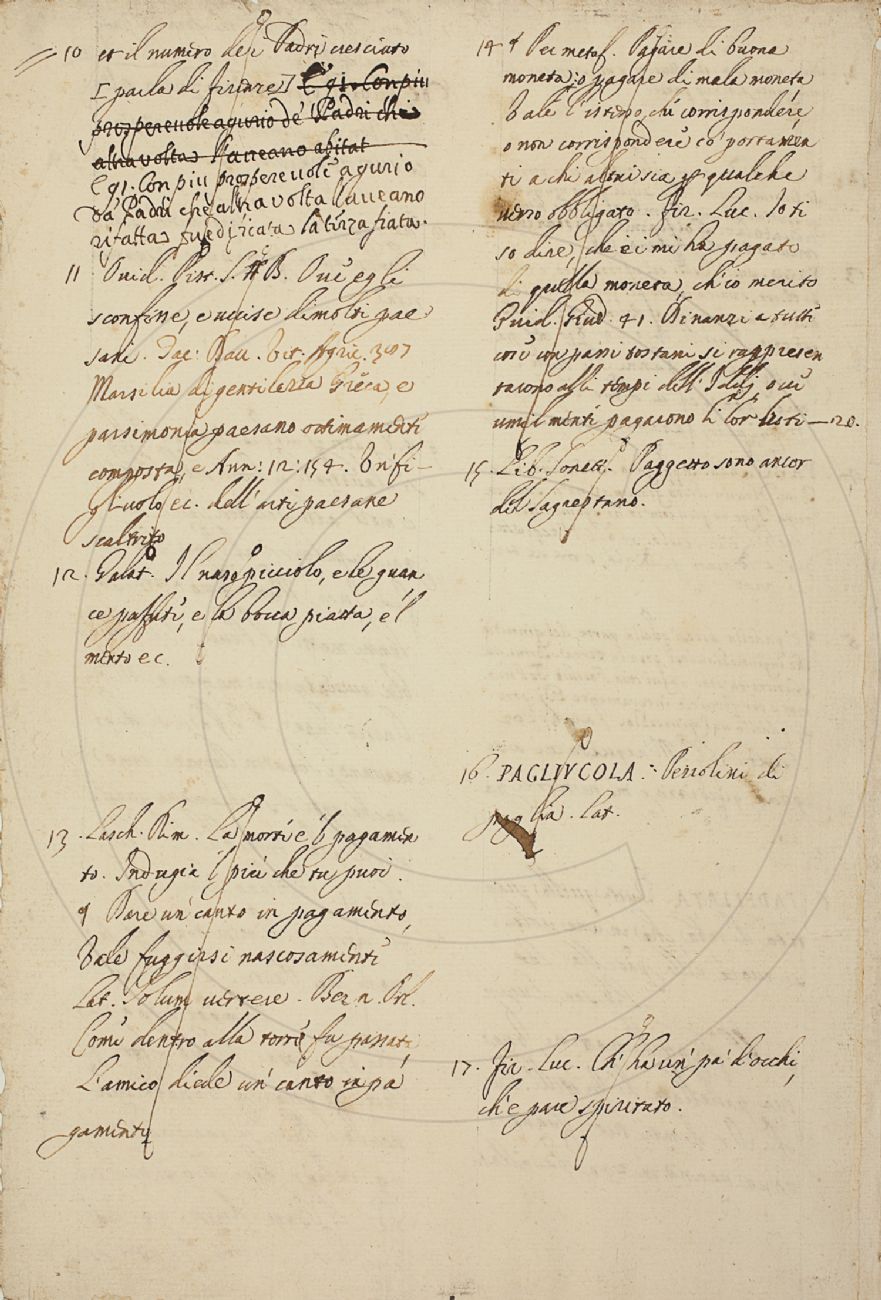 10 et il numero de i Padri cresciuto
[parla di Firenze] E 91. Con più
prosperevole agurio de' Padri che
altra volta l'aveano abitat
E 91. Con più prosperevole agurio
da' Padri che altra volta l'aveano
rifatta, fu edificata la terza fiata.
11 Ovid. Pist. S. B. Ove egli
sconfisse, e uccise di molti pae
sani. Tac. Dav. Vit. Agric. 387
Marsilia di gentilezza Greca, e
parsimonia paesana ottimamente
composta, e Ann: 12: 154. Un fi-
gliuolo ec. dell'arti paesane
scaltrito
12. Galat. Il naso picciolo, e le guan
ce paffute, e la bocca piatta, e 'l
mento ec.
13. Lasch. Rim. La morte è 'l pagamen
to. Indugia 'l più che tu puoi.
¶ Dare un canto in pagamento,
Vale fuggirsi nascosamente
Lat. Solum vertere. Bern. Orl.
Come dentro alla torre fu passato,
L'amico diede un canto in pa
gamento
14 ¶ Per metaf. Pagare di buona
moneta: o pagare di mala moneta
Vale l'istesso, che corrispondere
o non corrispondere co' portamen
ti a chi altri sia per qualche
verso obbligato. Fir. Luc. Io ti
so dire, che ei mi ha pagato
di quella moneta, ch'io merito
Guid. Giud. 41. Dinanzi a tutti
così con passi tostani si rappresen
tarono alli tempi dell' Idolj, ove
umilmente pagarono li lor 20.
15. Lib. Sonett. Paggetto sono ancor
del Sagrestano.
16. PAGLIVCOLA. Festolini di
paglia. Lat.
17. Fir. Luc. Ch'ha un pa' d'occhi,
che pare spiritato.